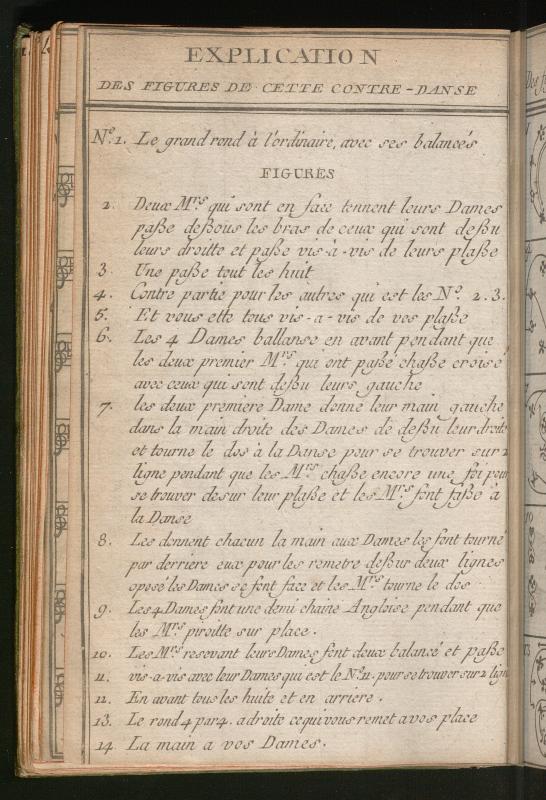 EXPLICATION
DES FIGURES DE CETTE CONTRE-DANSE
Nº.1. Le grand rond à l'ordinaire, avec ses balancés
FIGURES
2. Deux Mrs qui sont en face tennent leurs Dames
paße deßous les bras de ceux qui sont deßu
leurs droitte et paße vis-à-vis de leurs plaße
3. Une paße tout les huit
4. Contre partie pour les autres qui est les Nº. 2.3.
5. Et vous ette tous vis-a-vis de vos plaße
6. Les 4 Dames ballanse en avant pendant que
les deux premier Mrs qui ont paßé chaße croisé
avec ceux qui sont deßu leurs gauche
7. les deux premiere Dame donne leur main gauche
dans la main droite des Dames de deßu leur droite
et tourne le dos à la Danse pour se trouver sur 2
ligne pendant que les Mrs chaße encore une foi pour
se trouver desur leur plaße et les Mrs font faße à
la Danse
8. Les donnent chacun la main aux Dames les font tourné
par derriere eux pour les remetre deßur deux lignes
oposé les Dames se font face et les Mrs tourne le dos
9. Les 4 Dames font une demi chaine Angloise pendant que
les Mrs piroitte sur place.
10. Les Mrs resevant leurs Dames font deux balancé et paße
11. vis-a-vis avec leur Dames qui est le Nº 11. pour se trouver sur 2 lign
12. En avant tous les huite et en arriere.
13. Le rond 4 par 4. a droite ce qui vous remet a vos place
14. La main a vos Dames.